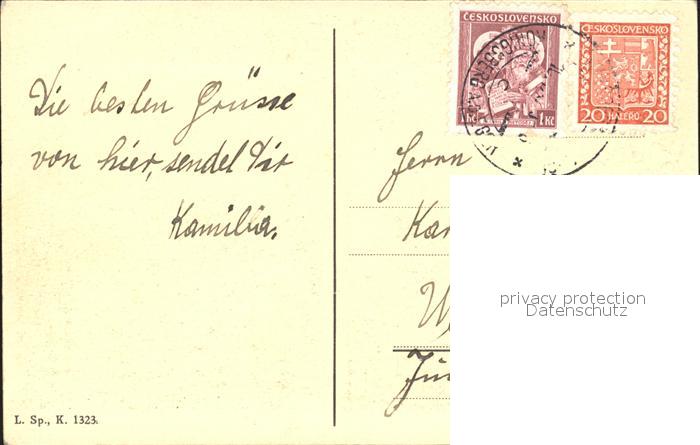 Die besten Grüsse
von hier, sendet Dir
Kamilla.
ČESKOSLOVENSKO
1Kč
ČESKOSLOVENSKO
20 HALÉŘŮ 20
Herrn
Kar
privacy protection
Datenschutz
L. Sp., K. 1323.